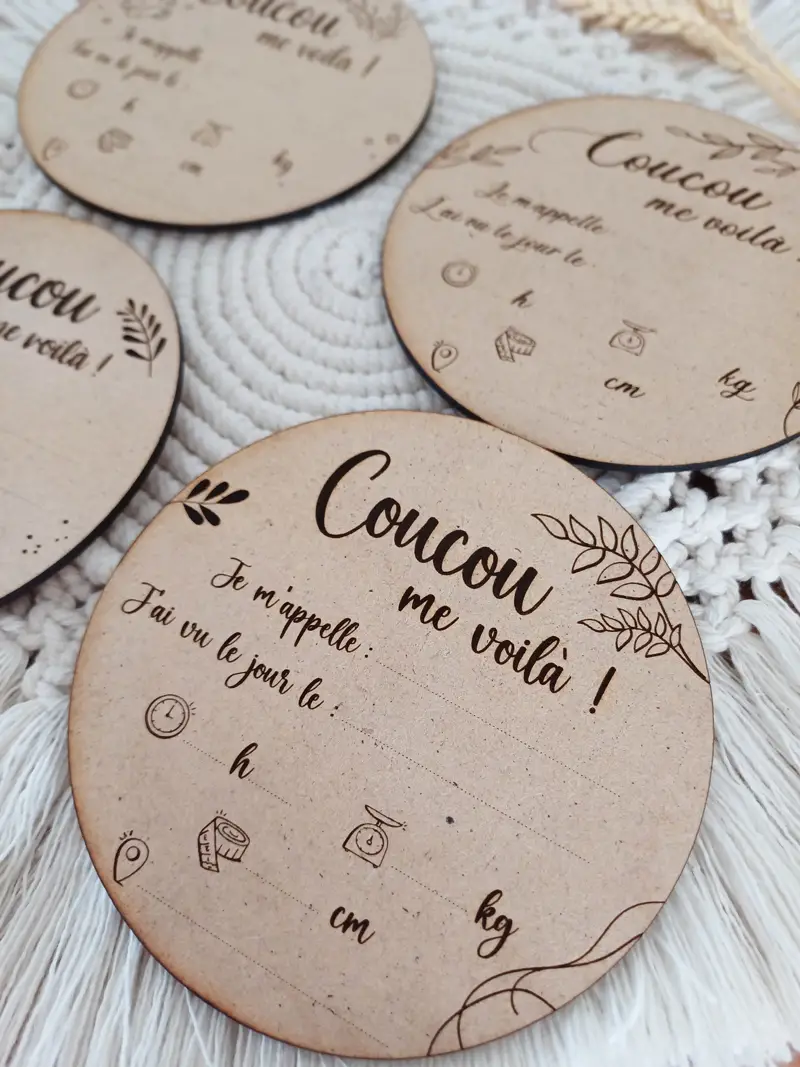 Coucou
me voilà !
Je m'appelle
J'ai vu le jour le :
h
cm
kg
Coucou
me voilà !
Je m'appelle
J'ai vu le jour le :
h
cm
kg
me voilà !
Coucou
me voilà !
Je m'appelle :
J'ai vu le jour le :
h
cm
kg